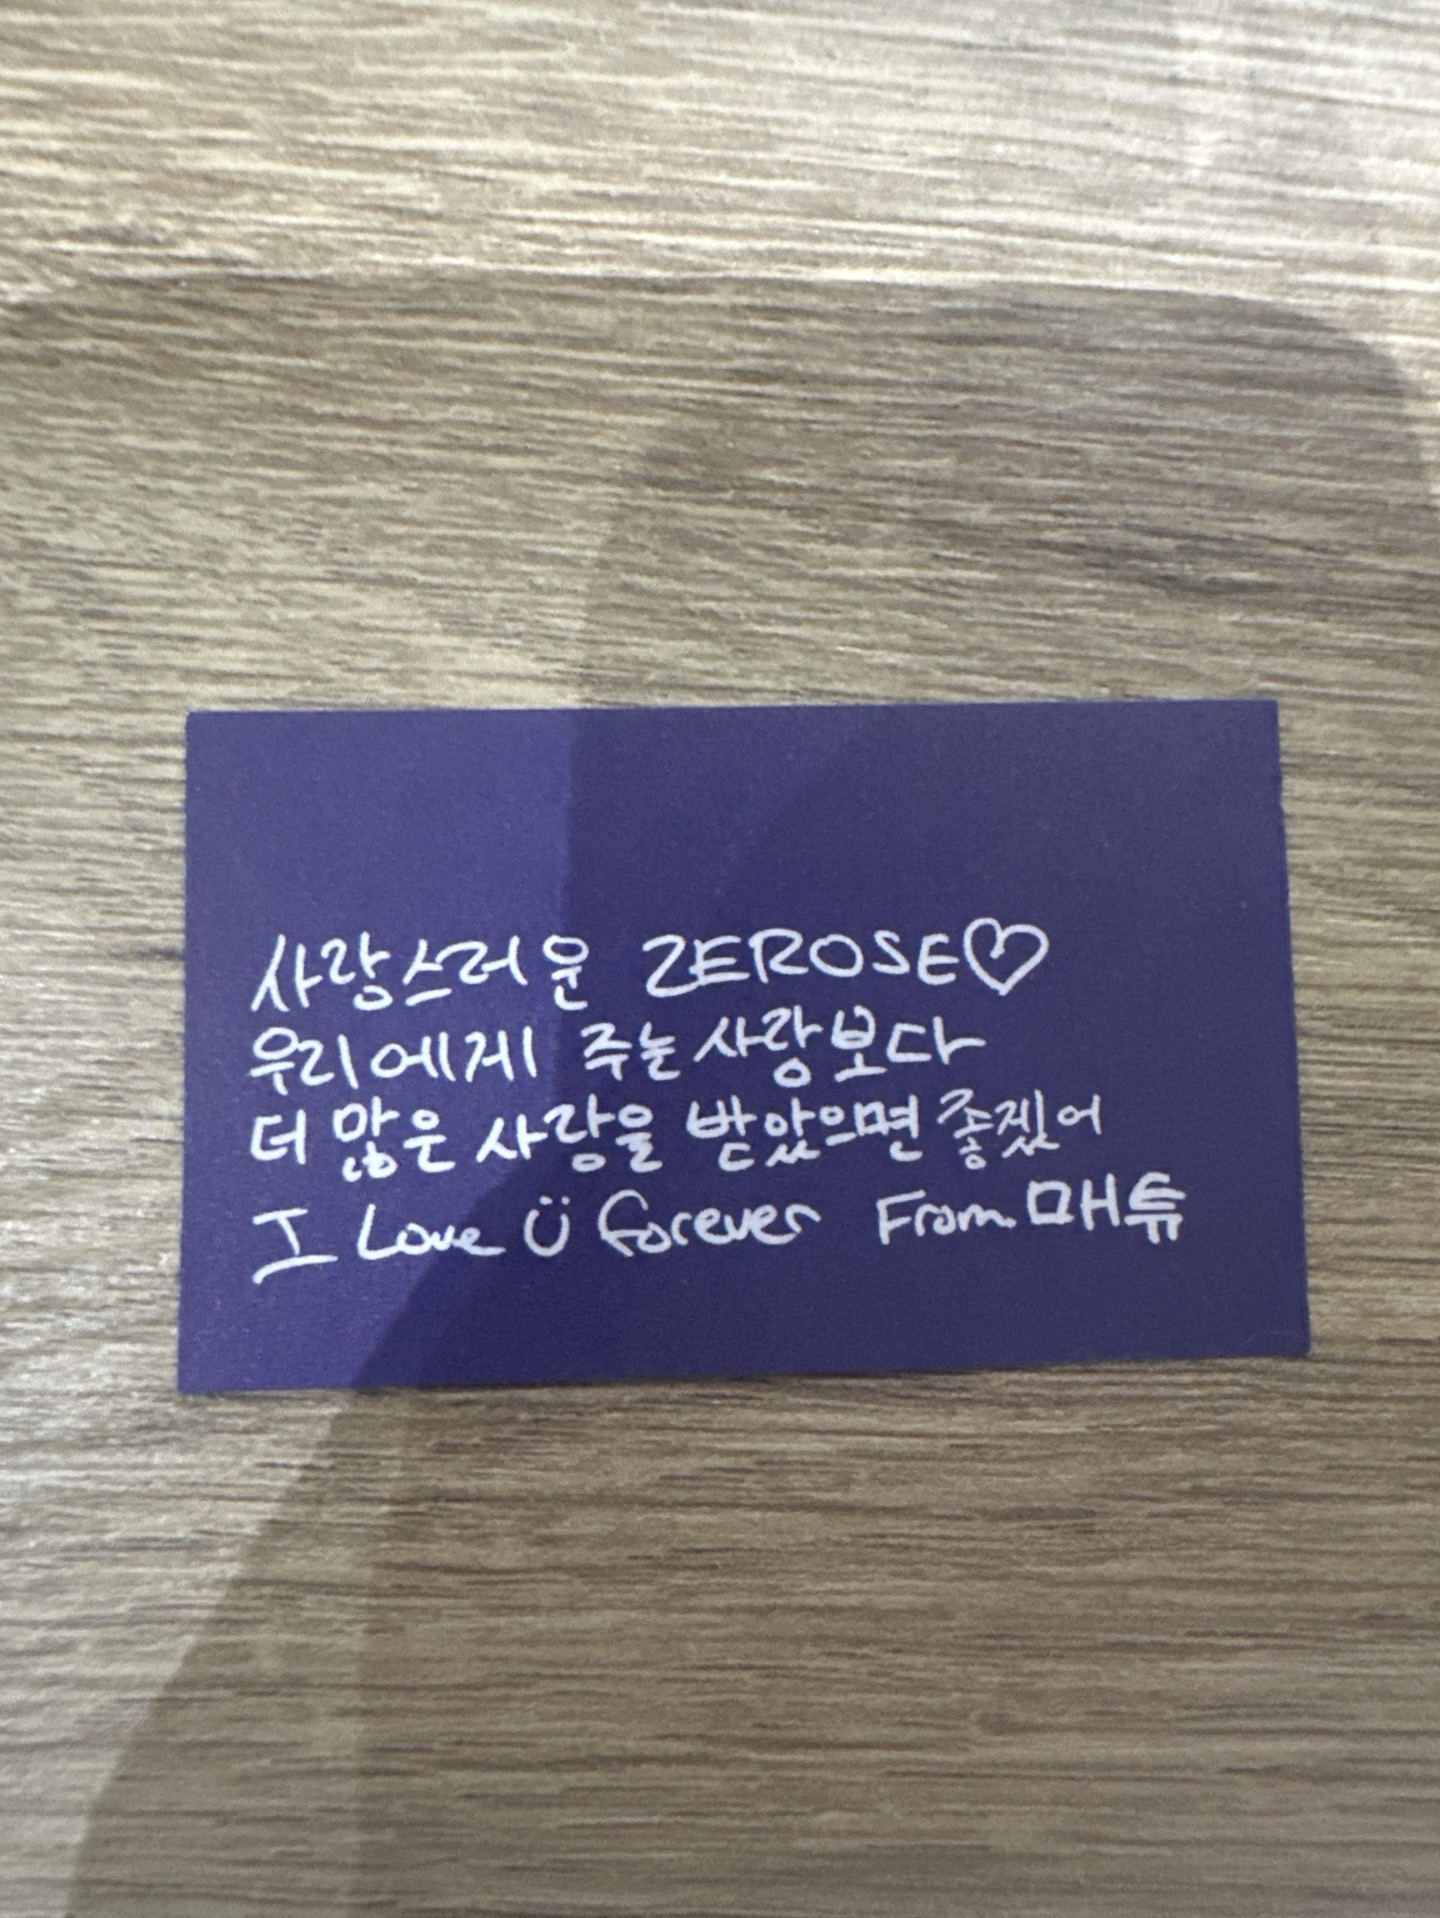 사랑스러운 ZEROSE♡
우리에게 주는 사랑보다
더 많은 사랑을 받았으면 좋겠어
I Love Ü forever From 매튜